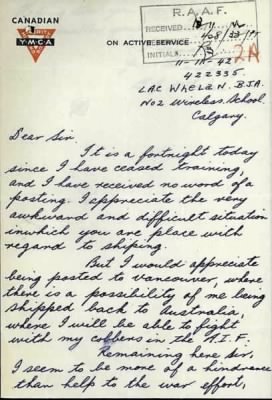 CANADIAN
YMCA
ON ACTIVE SERVICE
R. A. A. F.
RECEIVED
INITIALS
2A
11-11-42
422335.
LAC WHELAN. B.J.A.
No2 Wireless. School.
Calgary.
Dear Sir.
It is a fortnight today
since I have ceased training,
and I have received no word of a
posting. I appreciate the very
awkward and difficult situation
in which you are place with
regard to shiping.
But I would appreciate
being posted to Vancouver, where
there is a possibility of me being
shipped back to Australia,
where I will be able to fight
with my cobbers in the A.I.F.
Remaining here Sir,
I seem to be more of a hindrance
than help to the war effort,